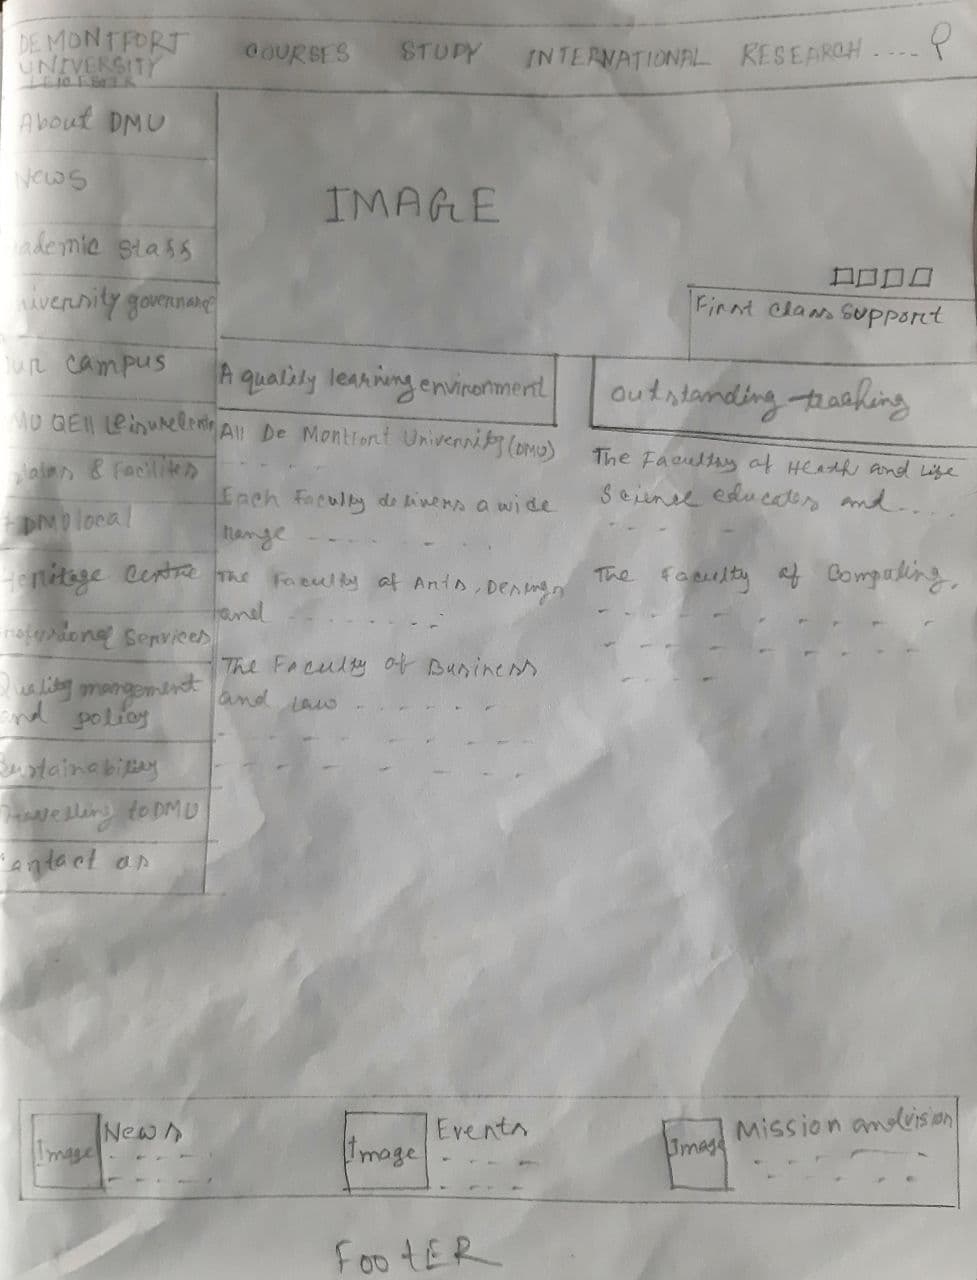 DE MONTFORT
UNIVERSITY
LEICESTER
COURSES STUDY INTERNATIONAL RESEARCH ....
About DMU
News
ademic Staff
iversity governance
ur campus
MU QEII Leisure Centre
& Facilites
DMU local
eritage Centre
ofessional Services
Quality mangement
and policy
Sustainability
Travelling to DMU
Contact us
IMAGE
First class support
A quality learning environment
All De Montfort University (DMU)
- - - - -
Each Faculty delivers a wide
range - - - - - - -
The Faculty of Arts, Design
and - - - - - - -
The Faculty of Business
and Law - - - - - -
outstanding teaching
The Faculty of Heath and Life
Science educates and ....
- - - -
The Faculty of Computing,
- - - - - - -
Image
News
Image
Events
Image
Mission and vision
FOOtER